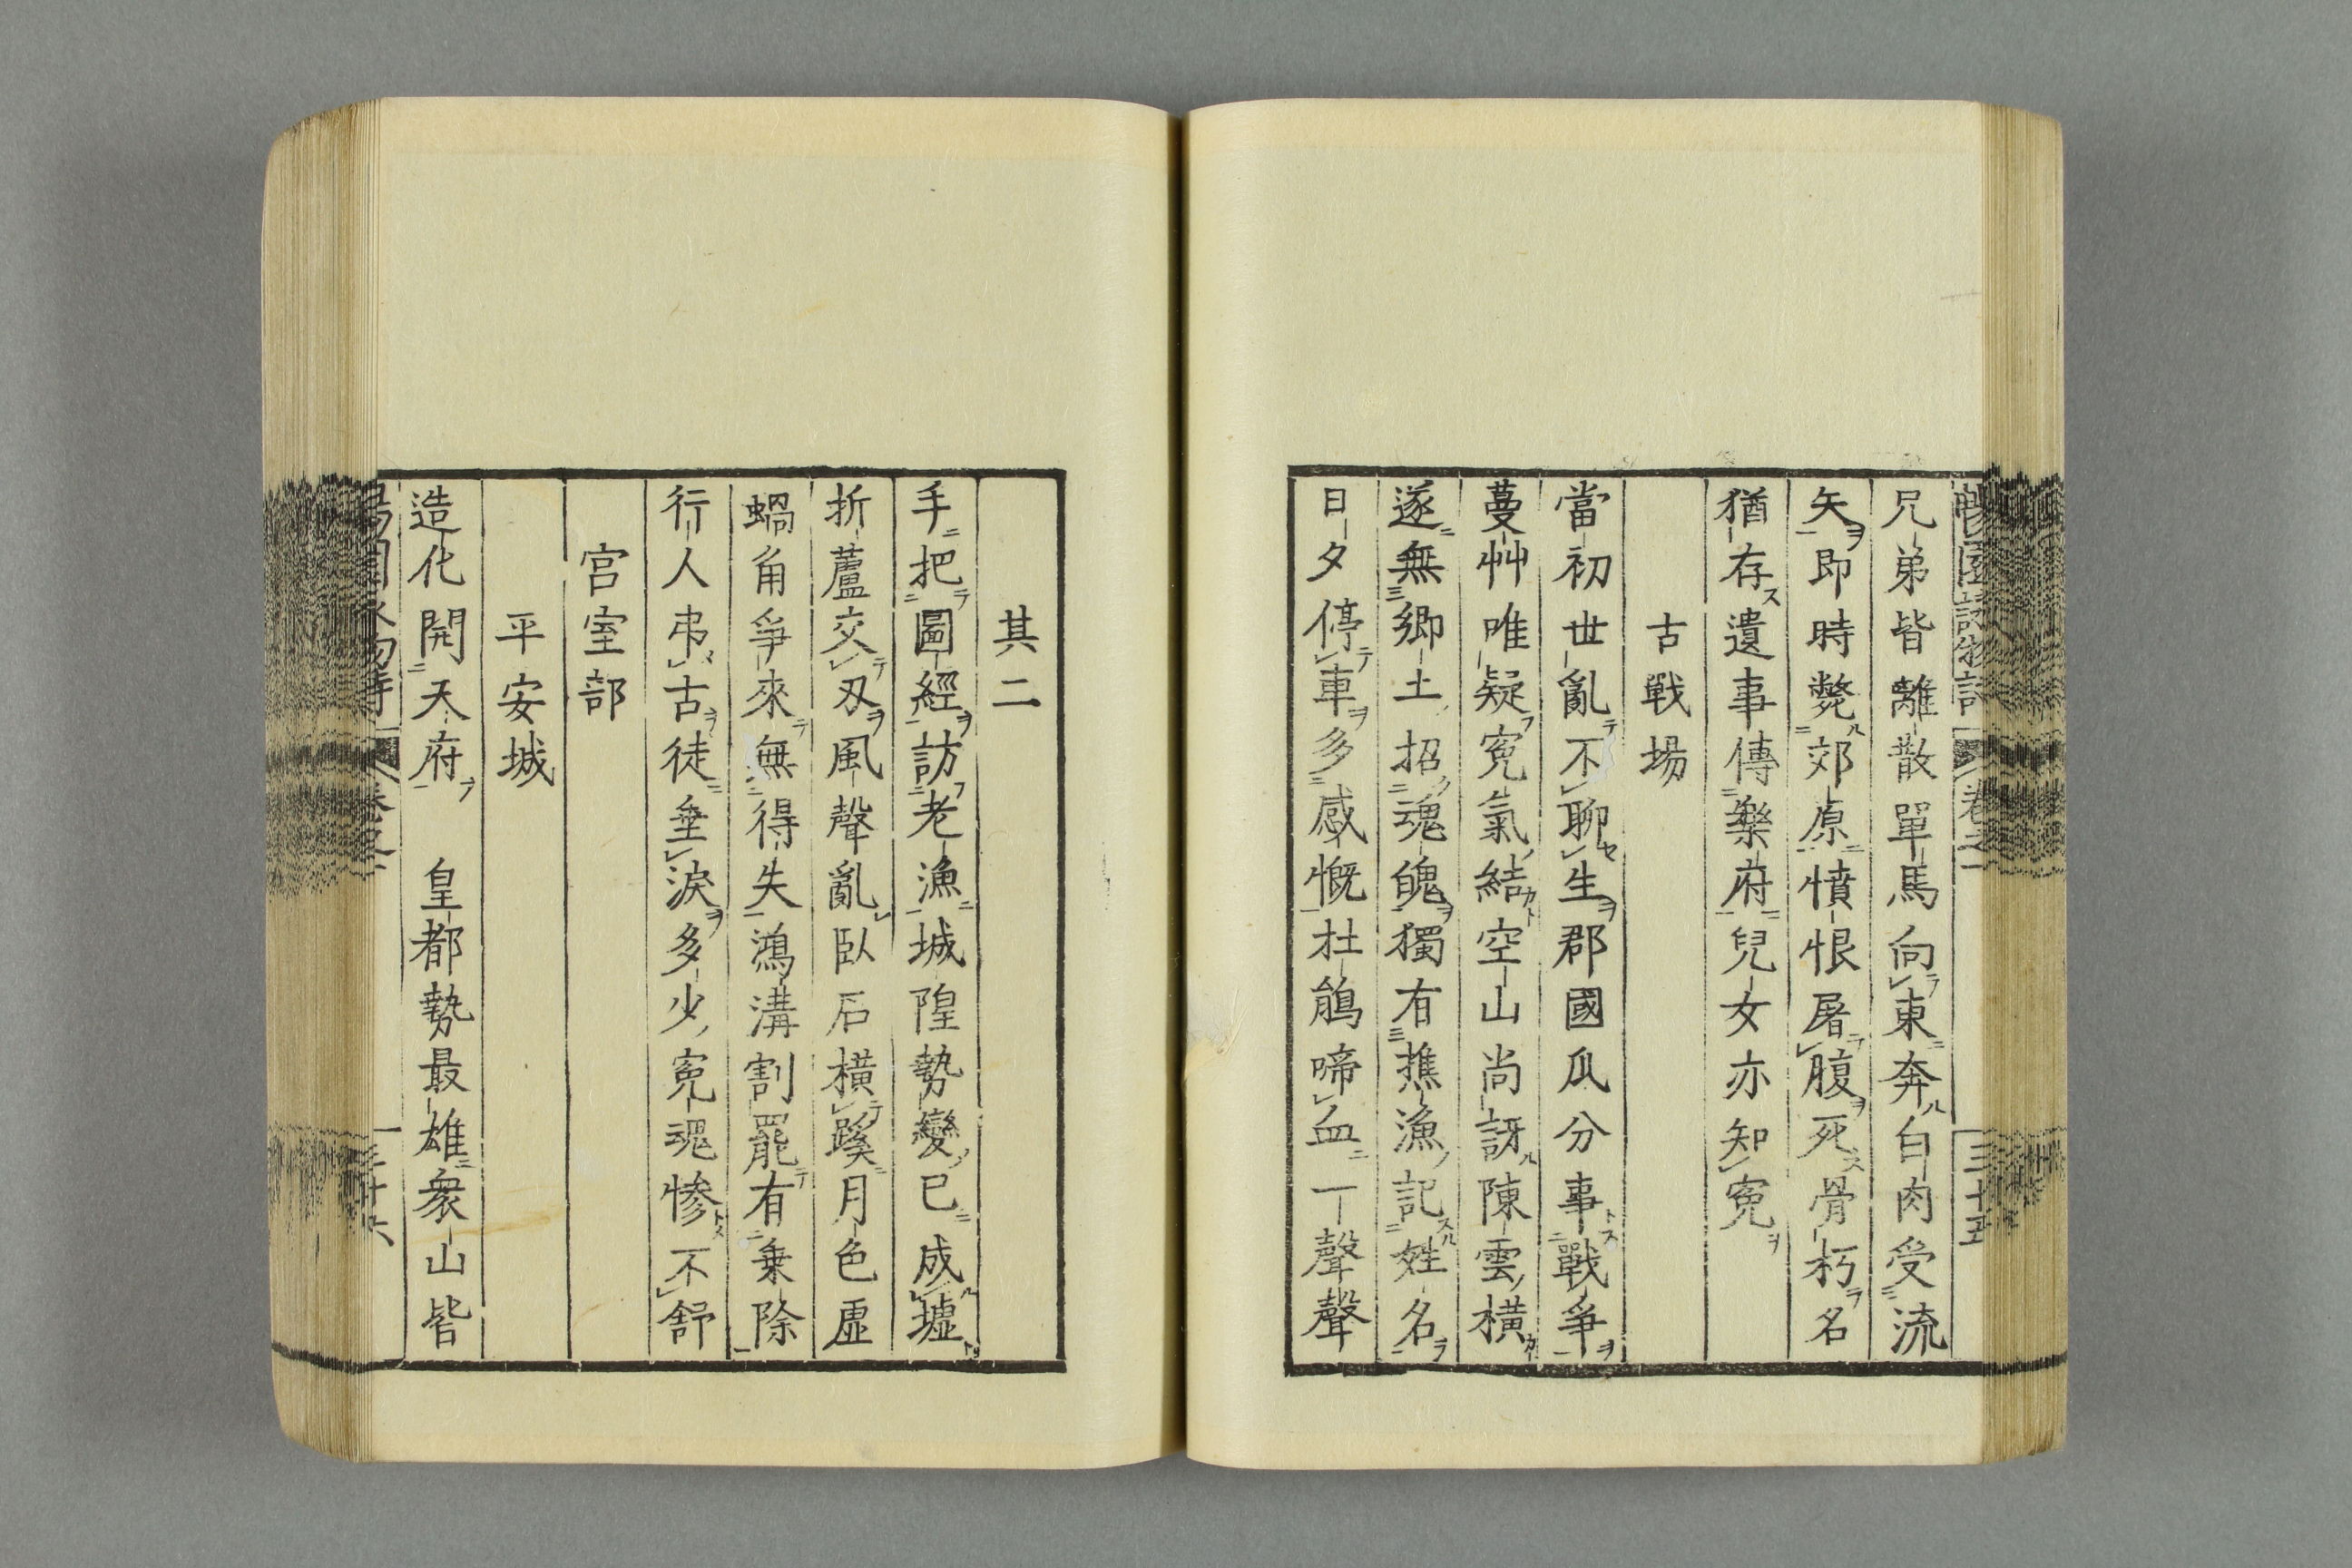 兄弟皆離散單馬向東奔白肉受流
矢即時斃郊原憤恨屠腹死骨朽名
猶存遺事傳樂府兒女亦知寃
古戰場
當初世亂不聊生郡國瓜分事戰爭
蔓艸唯疑寃氣結空山尚訝陳雲橫
遂無鄉土招魂魄獨有樵漁記姓名
日夕停車多感慨杜鵑啼血一聲聲
三十五
其二
手把圖經訪老漁城隍勢變已成墟
折蘆交刄風聲亂臥石橫蹊月色虛
蝸角爭來無得失鴻溝割罷有乘除
行人弔古徒垂淚多少寃魂惨不舒
宮室部
平安城
造化開天府　皇都勢最雄衆山皆
三十六